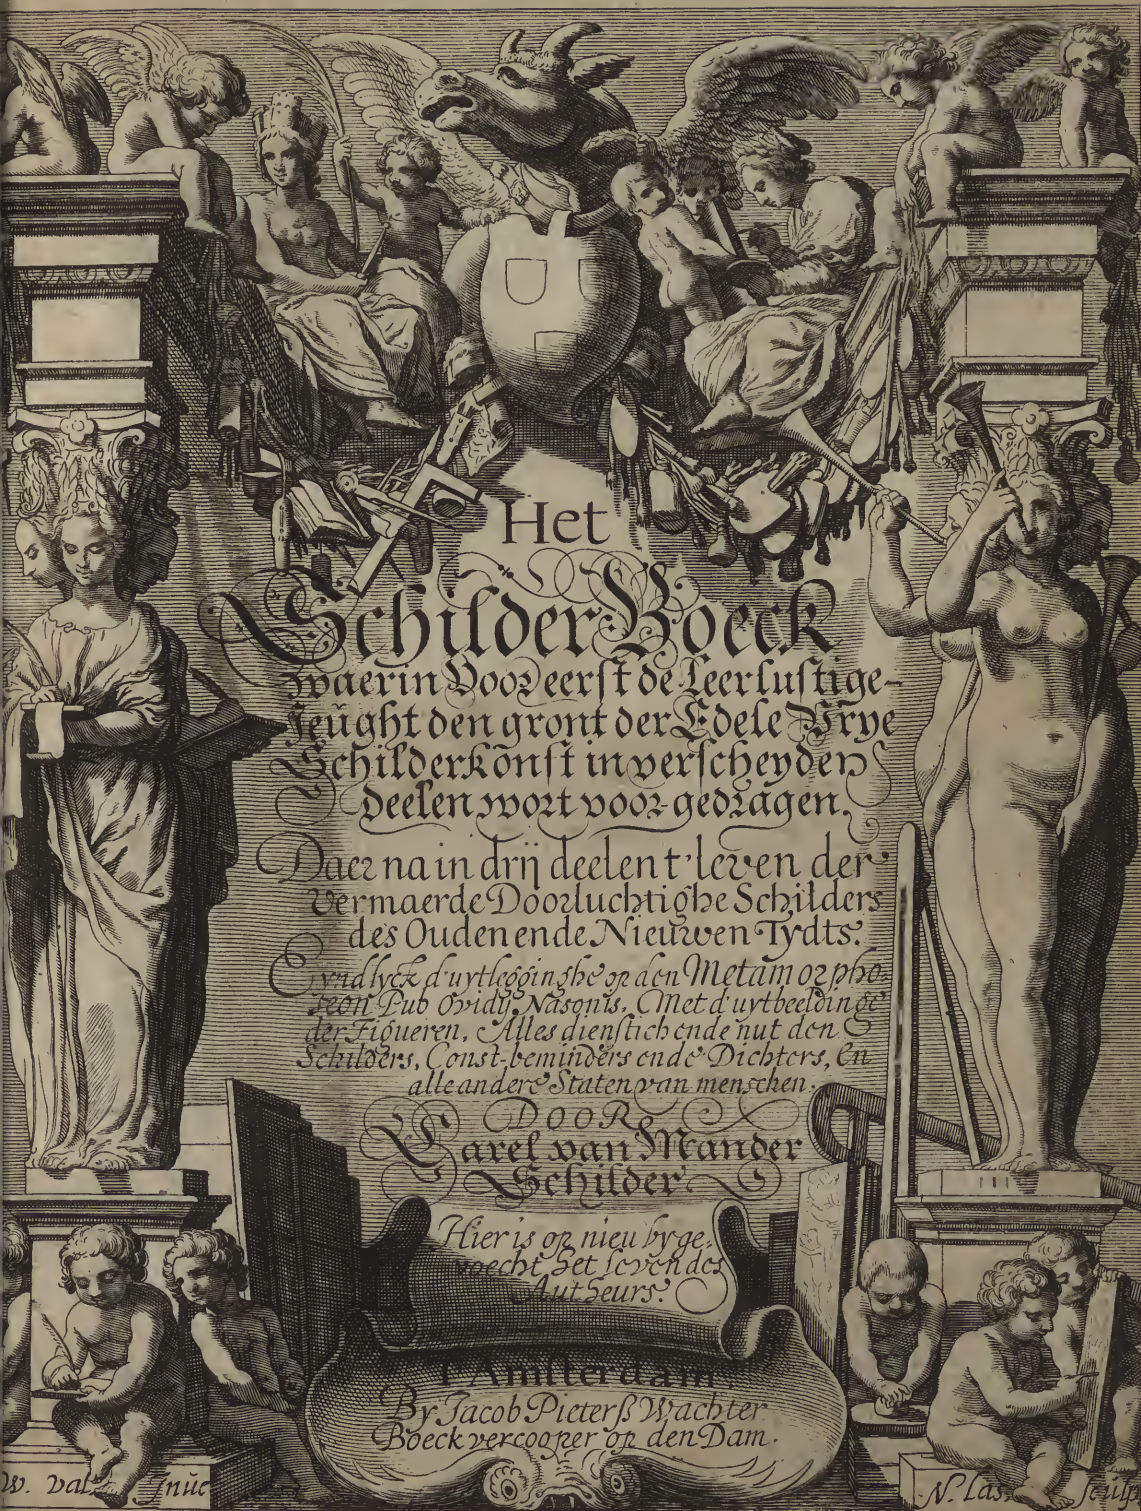 Het
Schilder Boeck
waerin Voor eerst de leerlustige-
Jeught den gront der Edele Vrye
Schilderkonst in verscheyden
deelen wort voor-gedragen.
Daer na in drij deelen t'leven der
vermaerde Doorluchtighe Schilders
des Ouden ende Nieuwen Tydts.
Eyndlyck d'uytlegginghe op den Metamorpho-
seon Pub Ovidij Nasonis. Met d'uytbeeldinge
der Figueren. Alles dienstich ende nut den
Schilders, Const-beminders ende Dichters, En
alle andere Staten van menschen.
DOOR
Carel van Mander
Schilder
Hier is op nieu byge-
voecht het leven des
Autheurs.
T'Amsterdam
By Jacob Pieterß Wachter
Boeckvercooper op den Dam.
W. val Inve
N. Las. sculp